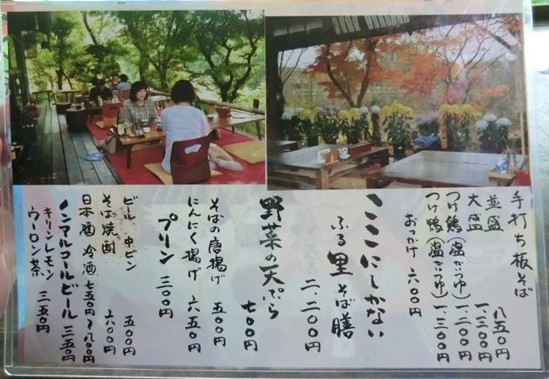 手打ち板そば
並盛 八五〇円
大盛 一、二〇〇円
つけ鴨(温かいつゆ) 一、三〇〇円
おかけ 六〇〇円
ここにしかない
ふる里そば膳
二、二〇〇円
野菜の天ぷら
七〇〇円
そばの唐揚げ 五〇〇円
にんにく揚げ 六五〇円
プリン 三〇〇円
ビール 中ビン 五〇〇円
そば焼酎 六〇〇円
日本酒 冷酒 七五〇〜八〇〇円
ノンアルコールビール 三五〇円
キリンレモン
ウーロン茶 二五〇円